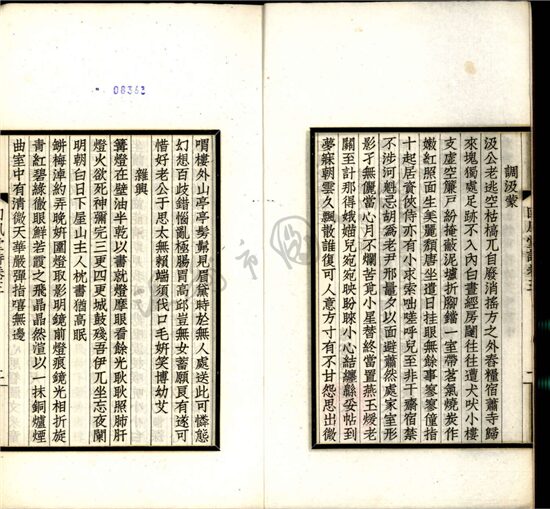 調汲蒙
汲公老逃空枯槁兀自廢消搖方之外舂糧宿蕭寺歸
來塊獨處足跡不入內白晝經房闥往往遭犬吠小樓
支虛空簾戶紛掩蔽泥壚折腳鐺一室帶茗氣燒炭作
嫩紅照面生美麗頹唐坐遣日挂眼無餘事寥寥僮指
十起居資俠侍亦有小求索咄嗟呼兒至非干齋宿禁
不涉河魁忌胡為老尹邢量夕以面避蕭然處家室形
影孑無儷當心月不爛苦覓小星替終當置燕玉煖老
關至計那得娥媌兒宛宛映盼睞小心結纏緜妥帖到
夢寐朝雲久飄散誰復可人意方寸有不甘怨思出微
喟樓外山亭亭髣髴見眉黛時於無人處送此可憐態
幻想百歧錯惱亂極腸胃高邱豈無女蓄願良有遂可
惜好老公于思太無賴端須伐口毛姸笑博幼艾
雜興
篝燈在壁油半乾以書就燈摩眼看餘光耿耿照肺肝
燈火欲死神彌完三更四更城鼓殘吾伊兀坐忘夜闌
明朝白日下屋山主人枕書猶高眠
缾梅淖約弄晚姸圍燈取影明鏡前燈痕鏡光相折旋
青紅碧綠徹眼鮮若霞之飛晶晶然渲以一抹銅爐煙
曲室中有清微天華嚴彈指嘻無邊
08363